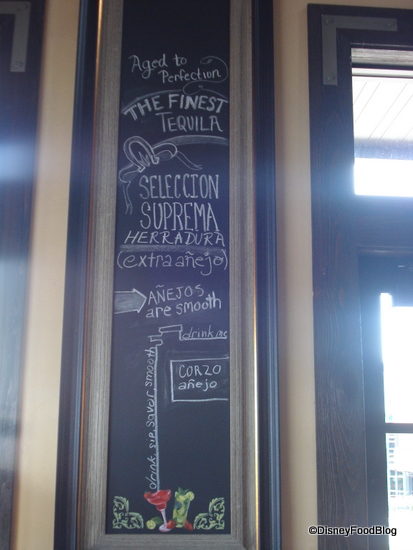 Aged to
Perfection
THE FINEST
TEQUILA
SELECCION
SUPREMA
HERRADURA
(extra añejo)
AÑEJOS
are smooth
drink me
drink, sip, savor, smooth
CORZO
añejo
©DisneyFoodBlog